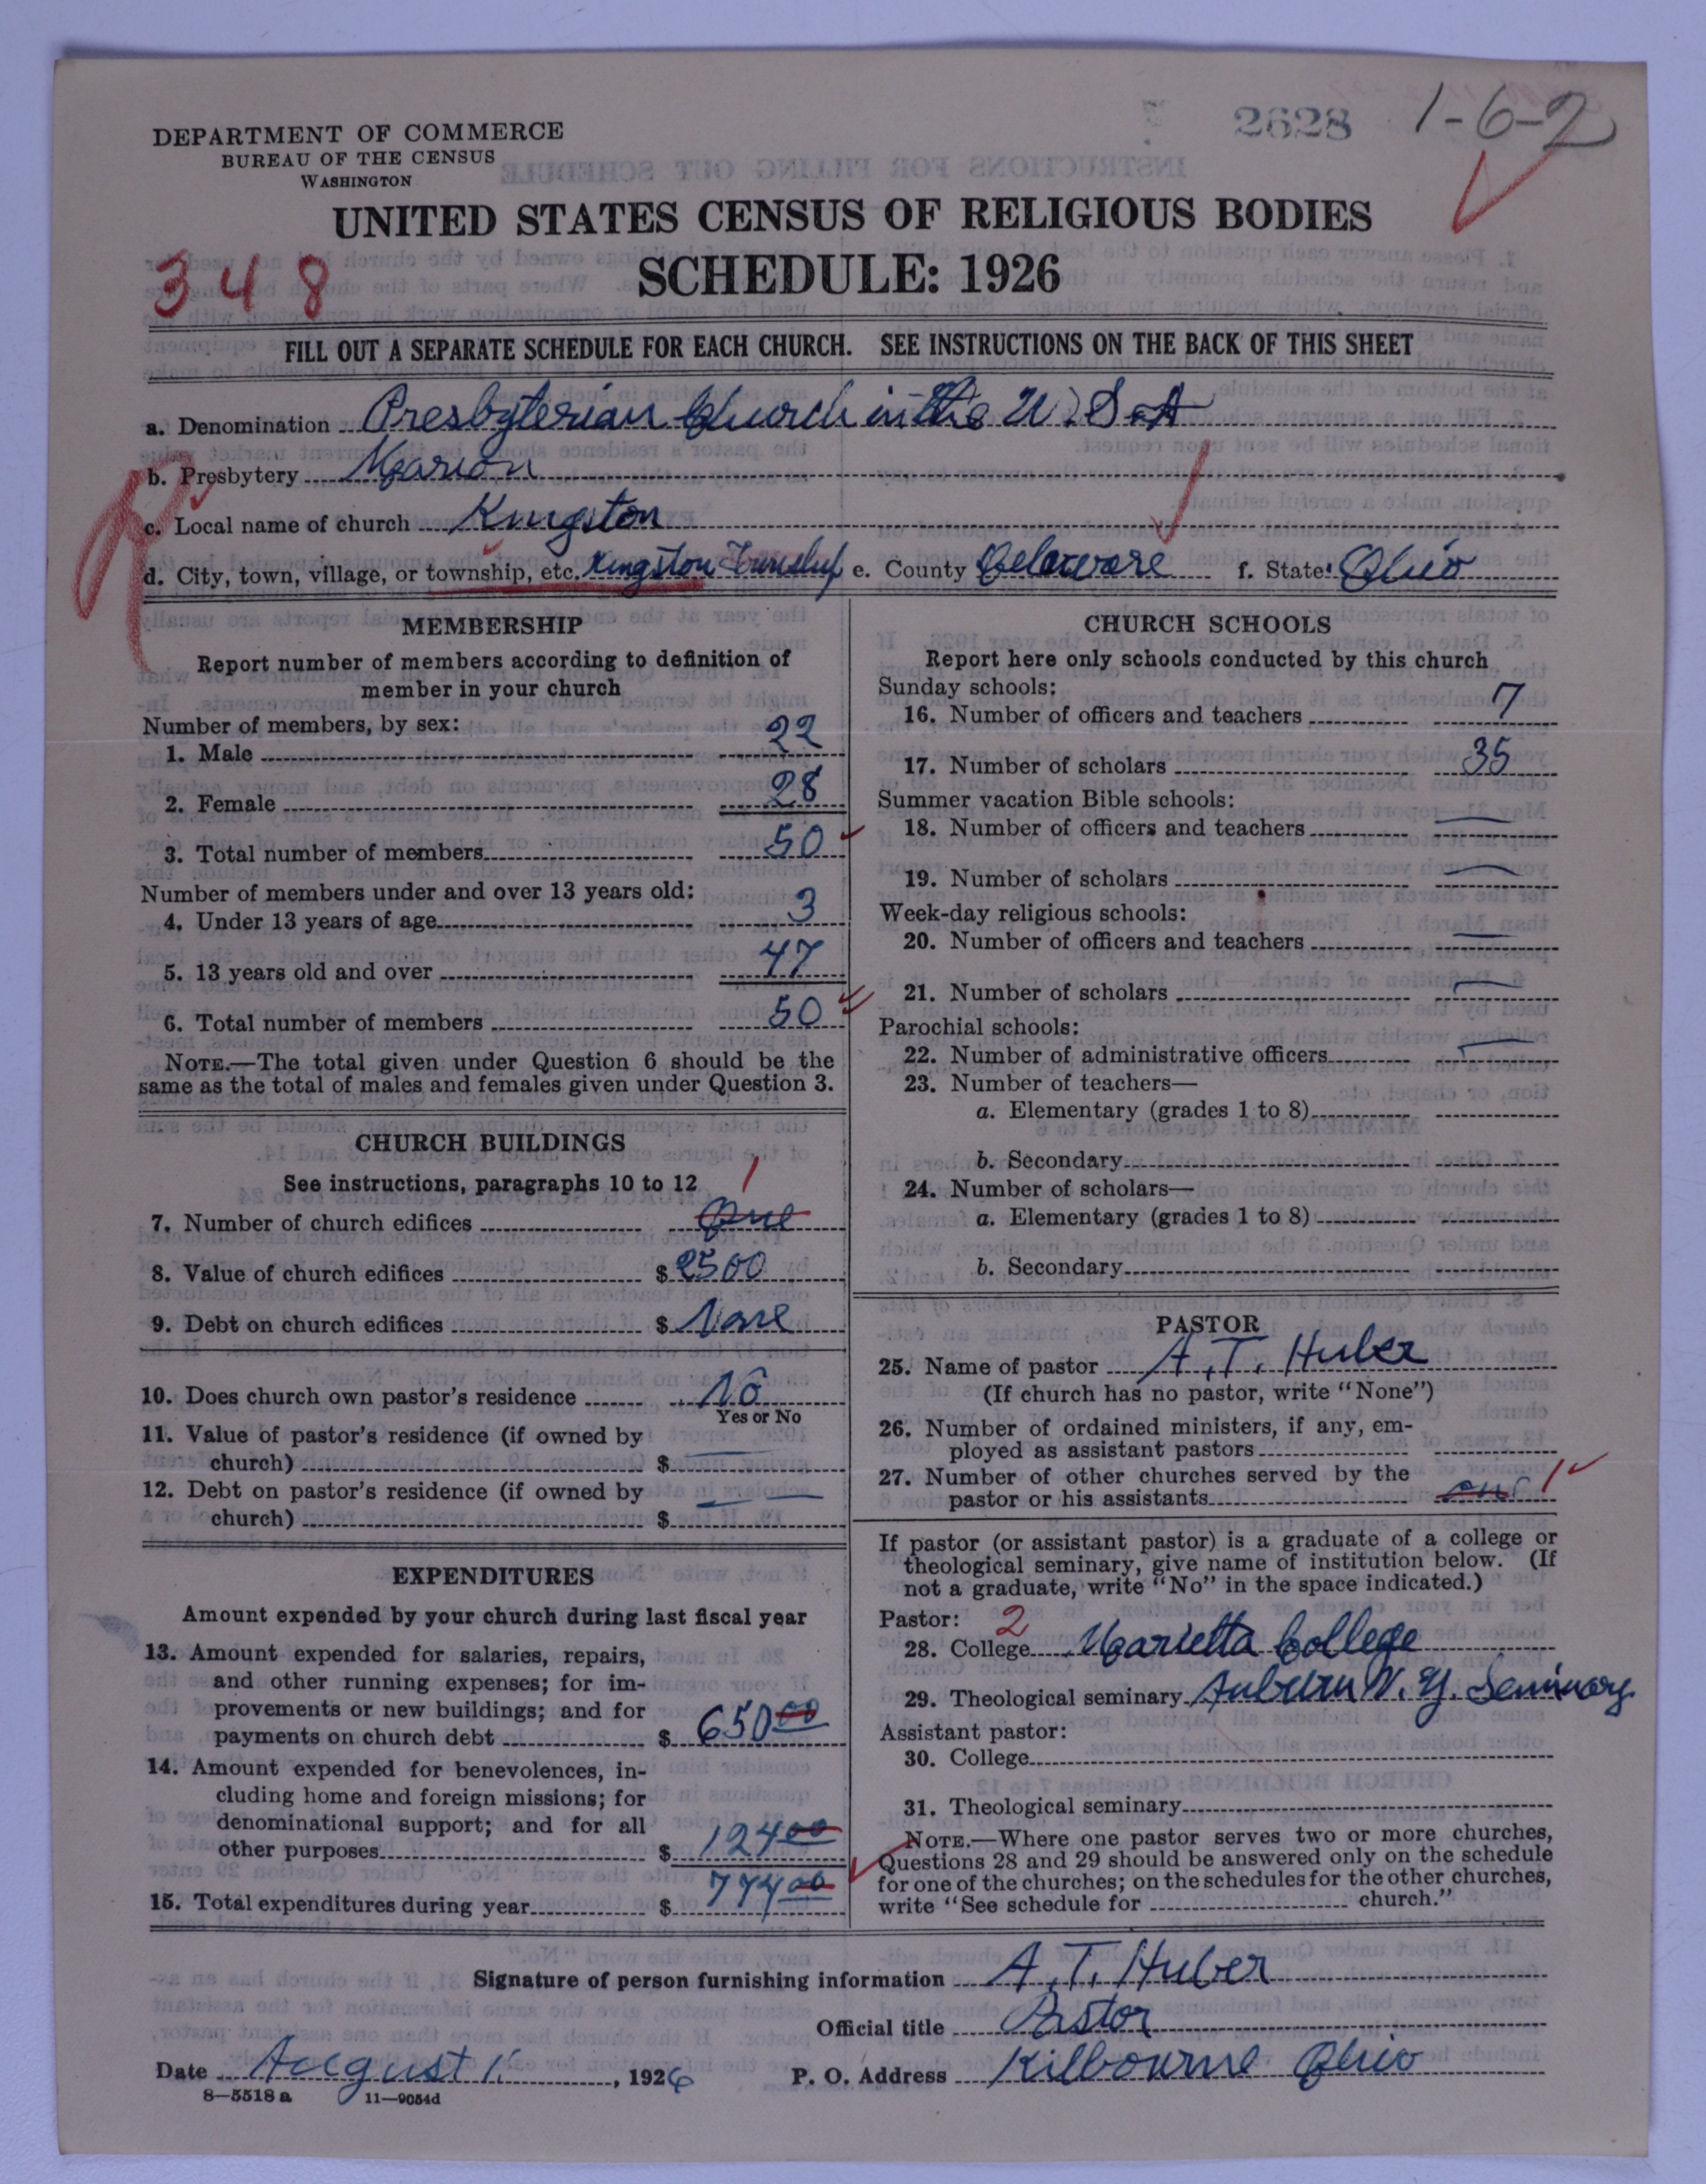 2628 1-6-2
DEPARTMENT OF COMMERCE
BUREAU OF THE CENSUS
WASHINGTON
UNITED STATES CENSUS OF RELIGIOUS BODIES
348
SCHEDULE: 1926
FILL OUT A SEPARATE SCHEDULE FOR EACH CHURCH. SEE INSTRUCTIONS ON THE BACK OF THIS SHEET
a. Denomination Presbyterian Church in the U. S. A
b. Presbytery Marion
c. Local name of church Kingston
d. City, town, village, or township, etc. Kingston Township e. County Delaware f. State: Ohio
MEMBERSHIP
Report number of members according to definition of
member in your church
Number of members, by sex:
1. Male 22
2. Female 28
3. Total number of members 50
Number of members under and over 13 years old:
4. Under 13 years of age 3
5. 13 years old and over 47
6. Total number of members 50
NOTE.—The total given under Question 6 should be the
same as the total of males and females given under Question 3.
CHURCH BUILDINGS
See instructions, paragraphs 10 to 12
1
7. Number of church edifices One
8. Value of church edifices $ 2500
9. Debt on church edifices $ None
10. Does church own pastor's residence No
Yes or No
11. Value of pastor's residence (if owned by
church) $ —
12. Debt on pastor's residence (if owned by
church) $ — —
EXPENDITURES
Amount expended by your church during last fiscal year
13. Amount expended for salaries, repairs,
and other running expenses; for im-
provements or new buildings; and for
payments on church debt $ 650 00
14. Amount expended for benevolences, in-
cluding home and foreign missions; for
denominational support; and for all
other purposes $ 124 00
15. Total expenditures during year $ 774 00
CHURCH SCHOOLS
Report here only schools conducted by this church
Sunday schools:
16. Number of officers and teachers 7
17. Number of scholars 35
Summer vacation Bible schools:
18. Number of officers and teachers —
19. Number of scholars —
Week-day religious schools:
20. Number of officers and teachers —
21. Number of scholars —
Parochial schools:
22. Number of administrative officers —
23. Number of teachers—
a. Elementary (grades 1 to 8)
b. Secondary
24. Number of scholars—
a. Elementary (grades 1 to 8)
b. Secondary
PASTOR
25. Name of pastor A. T. Huber
(If church has no pastor, write "None")
26. Number of ordained ministers, if any, em-
ployed as assistant pastors
27. Number of other churches served by the
pastor or his assistants one 1
If pastor (or assistant pastor) is a graduate of a college or
theological seminary, give name of institution below. (If
not a graduate, write "No" in the space indicated.)
Pastor: 2
28. College Marietta College
29. Theological seminary Auburn N. Y. Seminary
Assistant pastor:
30. College
31. Theological seminary
NOTE.—Where one pastor serves two or more churches,
Questions 28 and 29 should be answered only on the schedule
for one of the churches; on the schedules for the other churches,
write "See schedule for church."
Signature of person furnishing information A. T. Huber
Official title Pastor
Date August , 1926 P. O. Address Kilbourne Ohio
8—5518 a 11—9054d